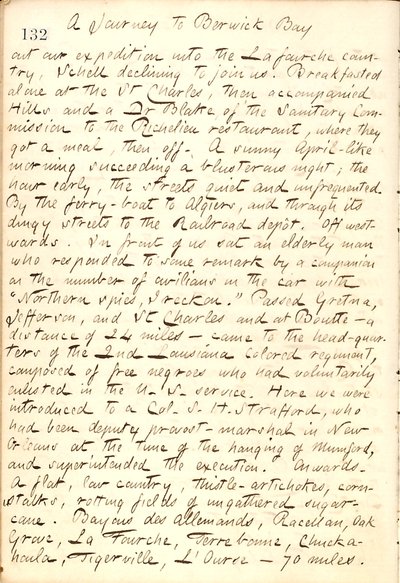 A Journey to Berwick Bay
132
out our expedition into the Lafourche coun-
try, Schell declining to join us. Breakfasted
alone at the St Charles, then accompanied
Hills and a Dr Blake of the Sanitary Com-
mission to the Richelieu restaurant, where they
got a meal, then off. A sunny April-like
morning succeeding a blusterous night; the
hour early, the streets quiet and unfrequented.
By the ferry-boat to Algiers, and through its
dingy streets to the Railroad depôt. Off west-
wards. In front of us sat an elderly man
who responded to some remark by a companion
on the number of civilians in the car with
"Northern spies, I reckon." Passed Gretna,
Jefferson, and St Charles and at Boutte — a
distance of 24 miles — came to the head-quar-
ters of the 2nd Louisiana colored regiment,
composed of free negroes who had voluntarily
enlisted in the U. S. service. Here we were
introduced to a Col. S. H. Strafford, who
had been deputy provost-marshal in New
Orleans at the time of the hanging of Mumford,
and superintended the execution. Onwards.
A flat, low country, thistle-artichokes, corn-
stalks, rotting fields of ungathered sugar-
cane. Bayous des Allemands, Racellan, Oak
Grove, La Fourche, Terrebonne, Chucka-
houla, Tigerville, L'Ourse — 70 miles.